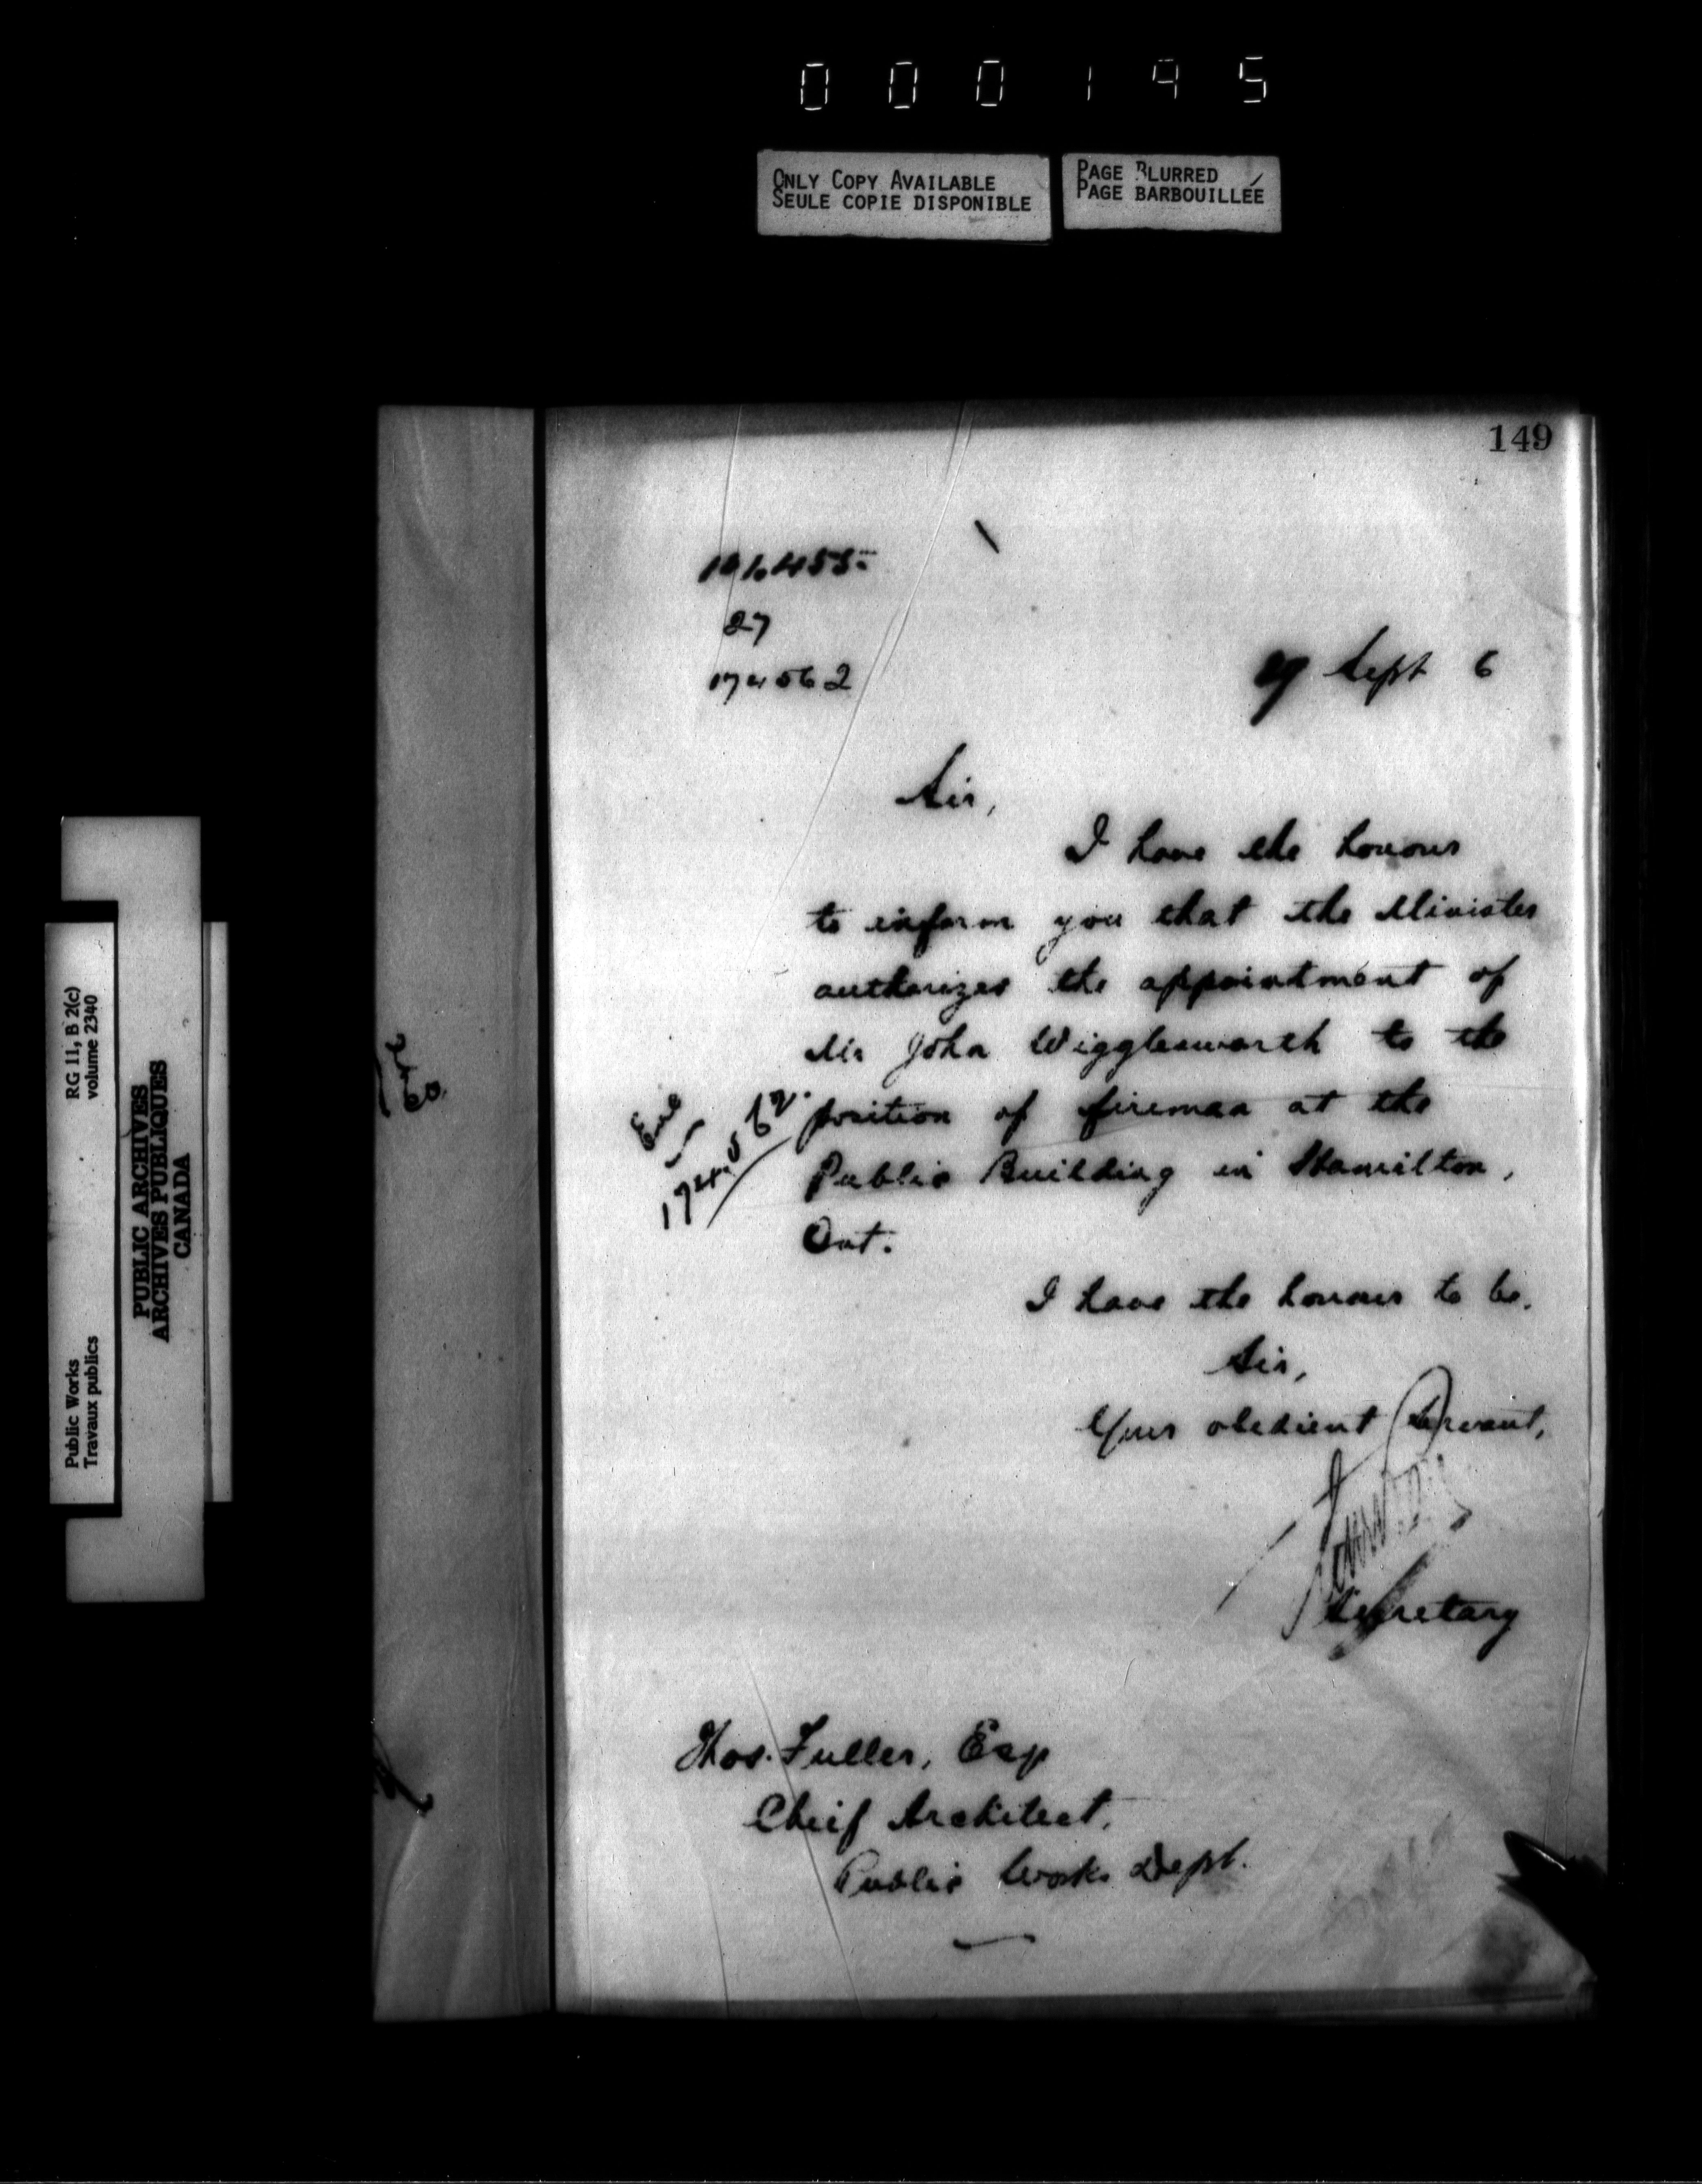 000195
ONLY COPY AVAILABLE
SEULE COPIE DISPONIBLE
PAGE BLURRED
PAGE BARBOUILLÉE
149
27
174562
Sept 6
Sir,
I have the honour
to inform you that the Minister
authorizes the appointment of
Mr John Wigglesworth to the
position of fireman at the
Public Building in Hamilton,
Ont.
174562.
I have the honour to be.
Sir,
Your obedient Servant,
Secretary
Thos. Fuller, Esq
Cheif Architect.
Public Works Dept.
RG 11, B 2(c)
volume 2340
Public Works
Travaux publics
PUBLIC ARCHIVES
ARCHIVES PUBLIQUES
CANADA